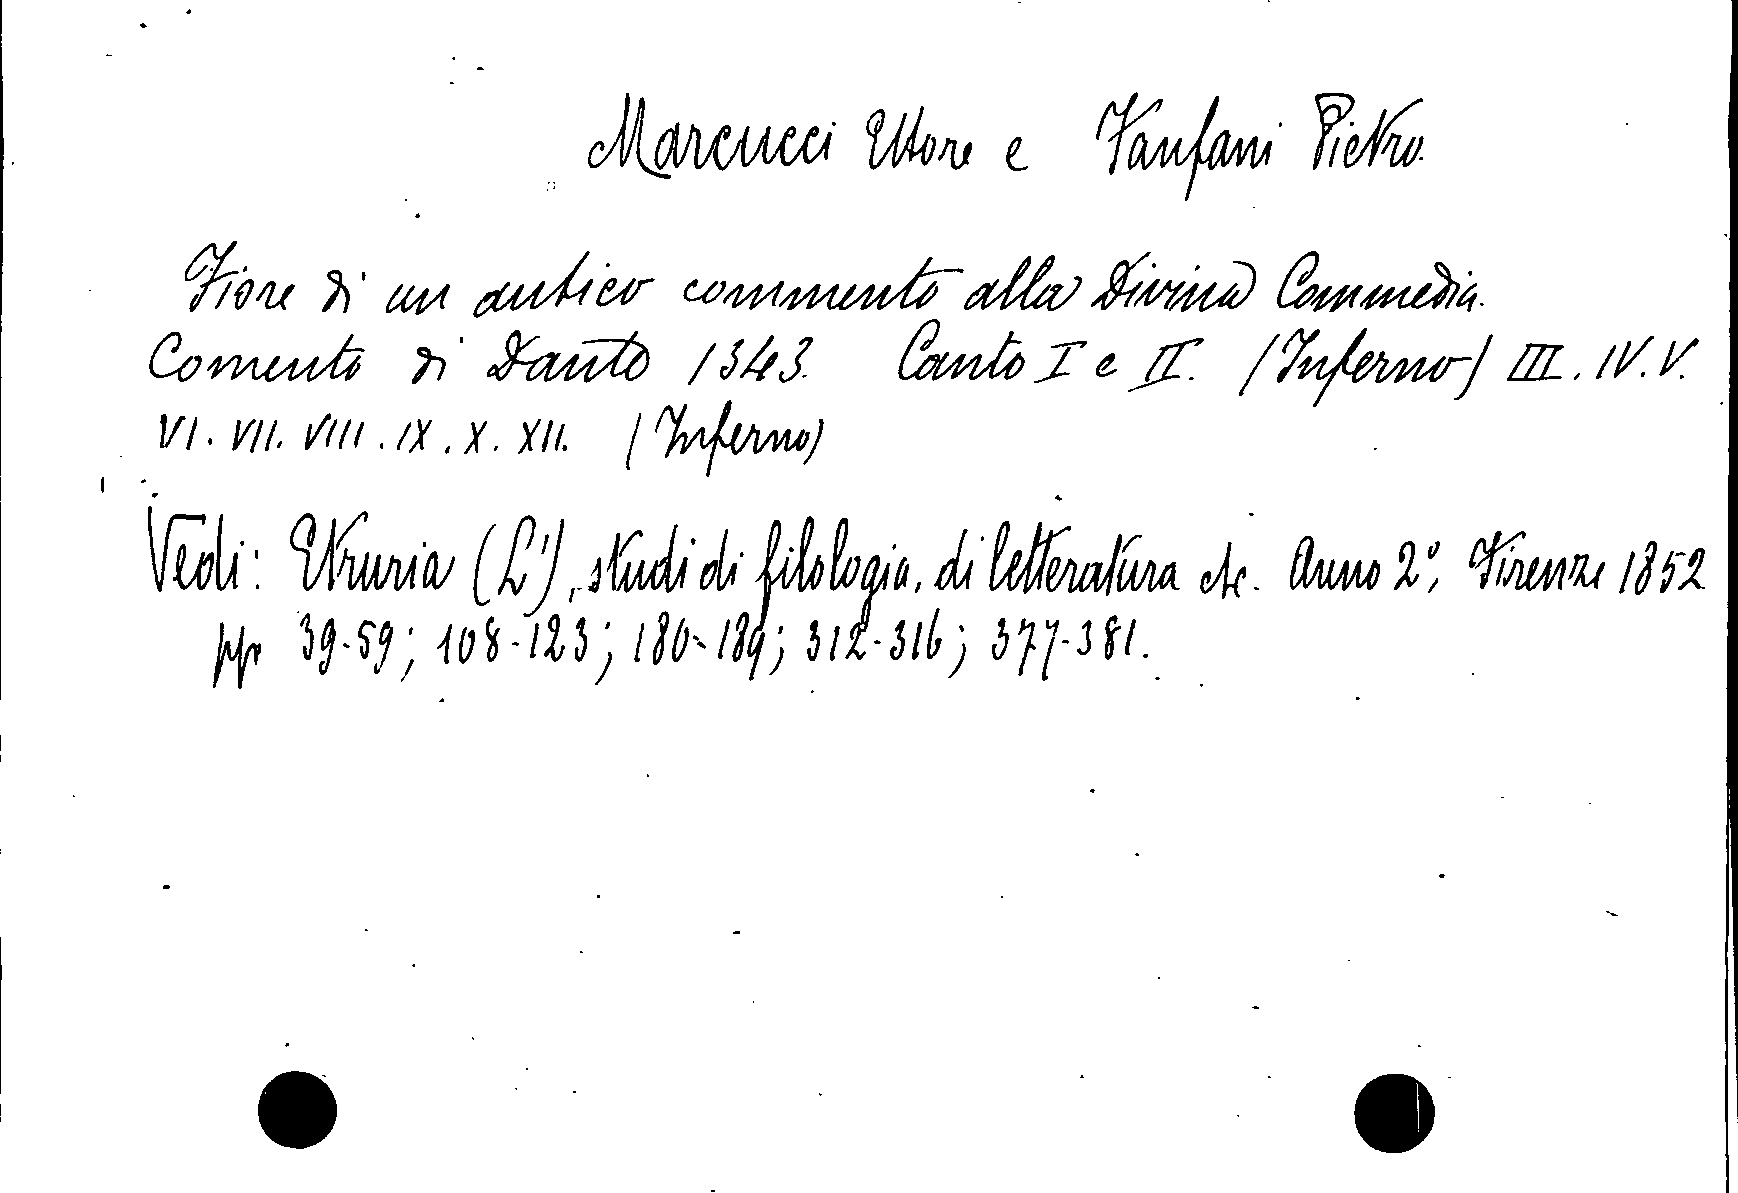 Marcucci Ettore e Fanfani Pietro.
Fiore di un antico commento alla Divina Commedia.
Comento di Danto 1343. Canto I e II. (Inferno) III. IV. V.
VI. VII. VIII. IX. X. XII. (Inferno)
Vedi: Etruria (L'), studi di filologia, di letteratura etc. Anno 2º, Firenze 1852
pp 39-59; 108-123; 180-189; 312-316; 377-381.